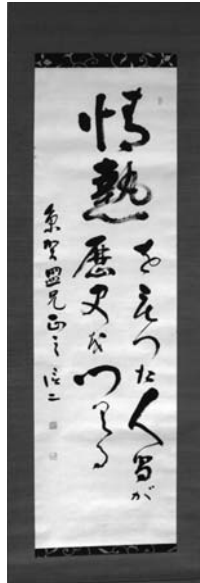 情熱をもつた人間が
歴史をつくる
盟兄正之 信二